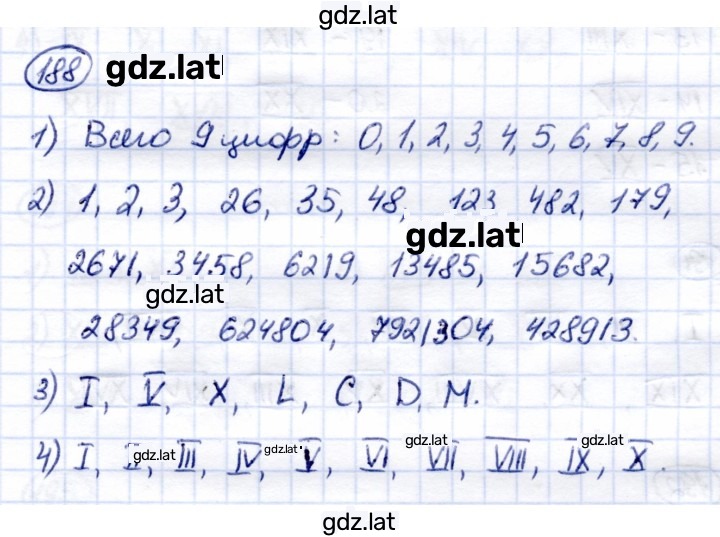 gdz.lat
188 gdz.lat
1) Всего 9 цифр: 0, 1, 2, 3, 4, 5, 6, 7, 8, 9.
2) 1, 2, 3, 26, 35, 48, 123 482, 179,
gdz.lat
2671, 3458, 6219, 13485, 15682,
gdz.lat
28349, 624804, 7921304, 428913.
3) I, V, X, L, C, D, M.
4) I, II, III, IV, V, VI, VII, VIII, IX, X.
gdz.lat gdz.lat gdz.lat gdz.lat
gdz.lat